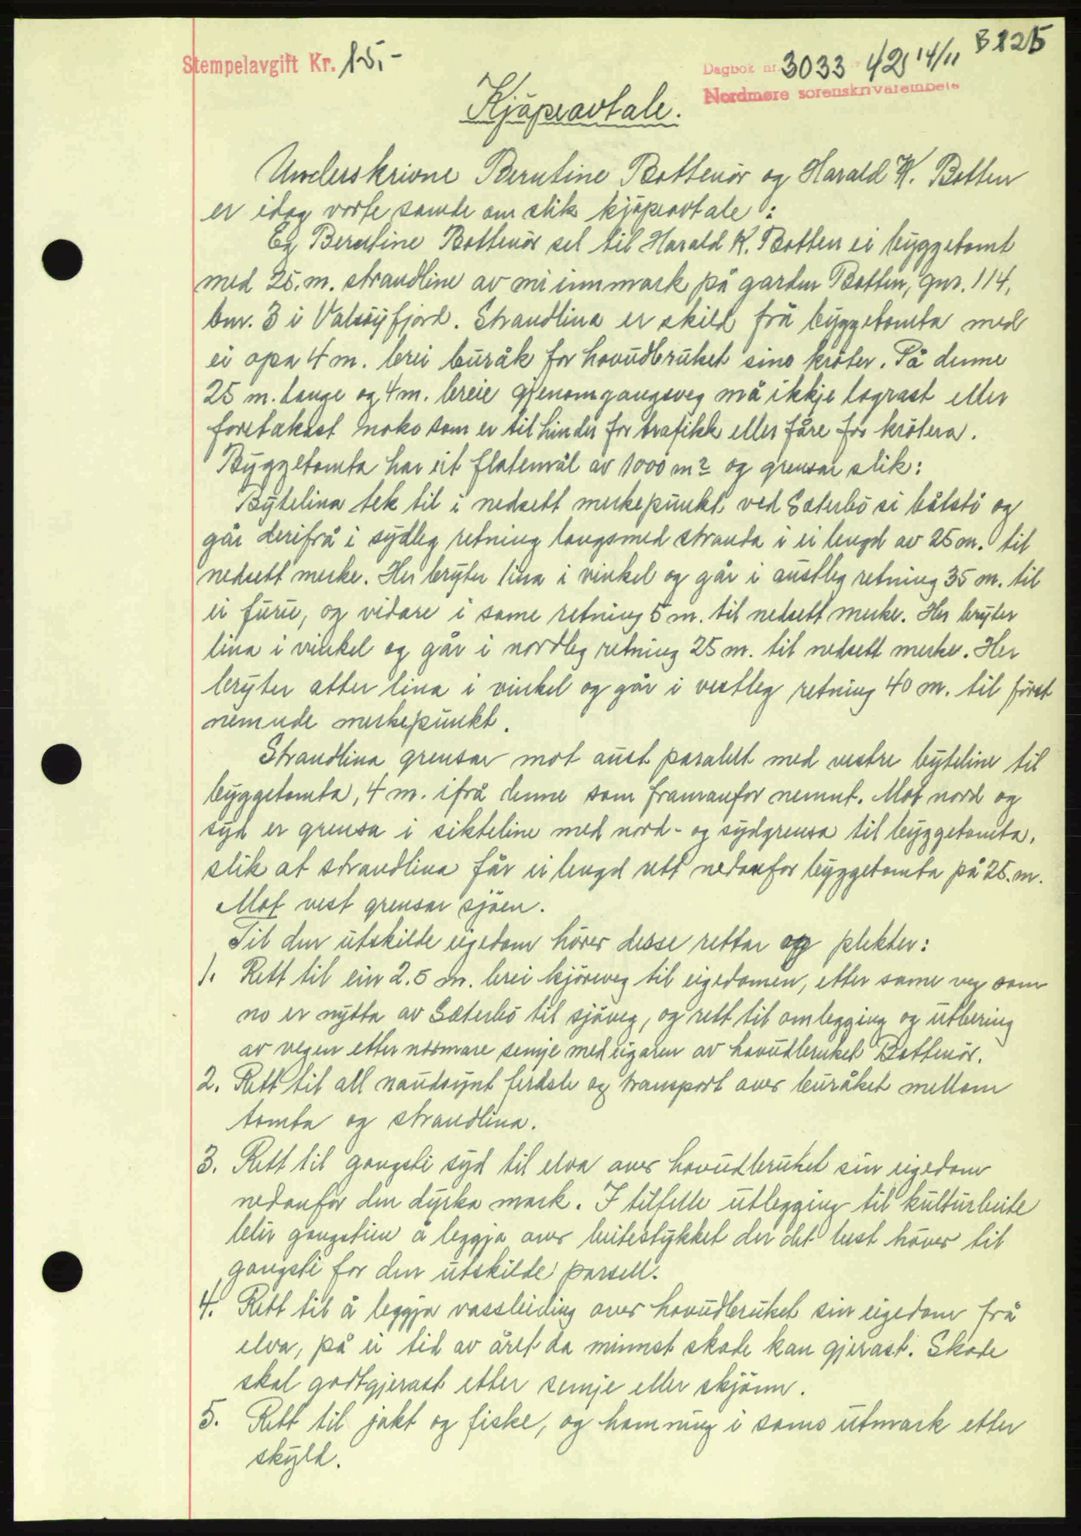 B125
Stempelavgift Kr. 15,-
Dagbok nr. 3033 - 42 14/11
Nordmøre sorenskrivarembete
Kjöpeavtale.
Underskrivne Berntine Bottenör og Harald K. Botten
er idag vorte samde om slik kjöpeavtale:
Eg Berntine Bottenör sel til Harald K. Botten ei byggetomt
med 25. m. strandline av mi innmark på garden Botten, gnr. 114,
bnr. 3 i Valsöyfjord. Strandlina er skild frå byggetomta med
ei opa 4 m. brei buråk for hovudbruket sine kröter. På denne
25 m. lange og 4 m. breie gjenomgangsveg må ikkje lagrast eller
foretakast noko som er til hinder for trafikk eller fåre for krötera.
Byggetomta har eit flatemål av 1000 m2 og grensar slik:
Bytelina tek til i nedsett merkepunkt ved Sæterbö si båtstö og
går derifrå i sydleg retning langsmed stranda i ei lengd av 25 m. til
nedsett merke. Her bryter lina i vinkel og går i austleg retning 35 m. til
ei furu, og vidare i same retning 5 m. til nedsett merke. Her bryter
lina i vinkel og går i nordleg retning 25 m. til nedsett merke. Her
bryter atter lina i vinkel og går i vestleg retning 40 m. til först
nemnde merkepunkt.
Strandlina grensar mot aust paralelt med vestre byteline til
byggetomta, 4 m. ifrå denne som framanfor nemnt. Mot nord og
syd er grensa i sikteline med nord- og sydgrensa til byggetomta,
slik at strandlina får ei lengd rett nedanfor byggetomta på 25. m.
Mot vest grensar sjöen.
Til den utskilde eigedom hörer desse rettar og plekter:
1. Rett til ein 2.5 m. brei kjöreveg til eigedomen, etter same veg som
no er nytta av Sæterbö til sjöveg, og rett til omlegging og utbering
av vegen etter nærmare semje med eigaren av hovudbruket Bottenör.
2. Rett til all naudsynt ferdsle og transport over buråket mellom
tomta og strandlina.
3. Rett til gangsti syd til elva over hovudbruket sin eigedom
nedanfor den dyrka mark. I tilfelle utlegging til kulturbeite
blir gangstien å leggja over beitestykket der det best höver til
gangsti for den utskilde parsell.
4. Rett til å leggja vassleiding over hovudbruket sin eigedom frå
elva, på ei tid av året da minnst skade kan gjerast. Skade
skal godtgjerast etter semje eller skjönn.
5. Rett til jakt og fiske, og hamning i sams utmark etter
skyld.